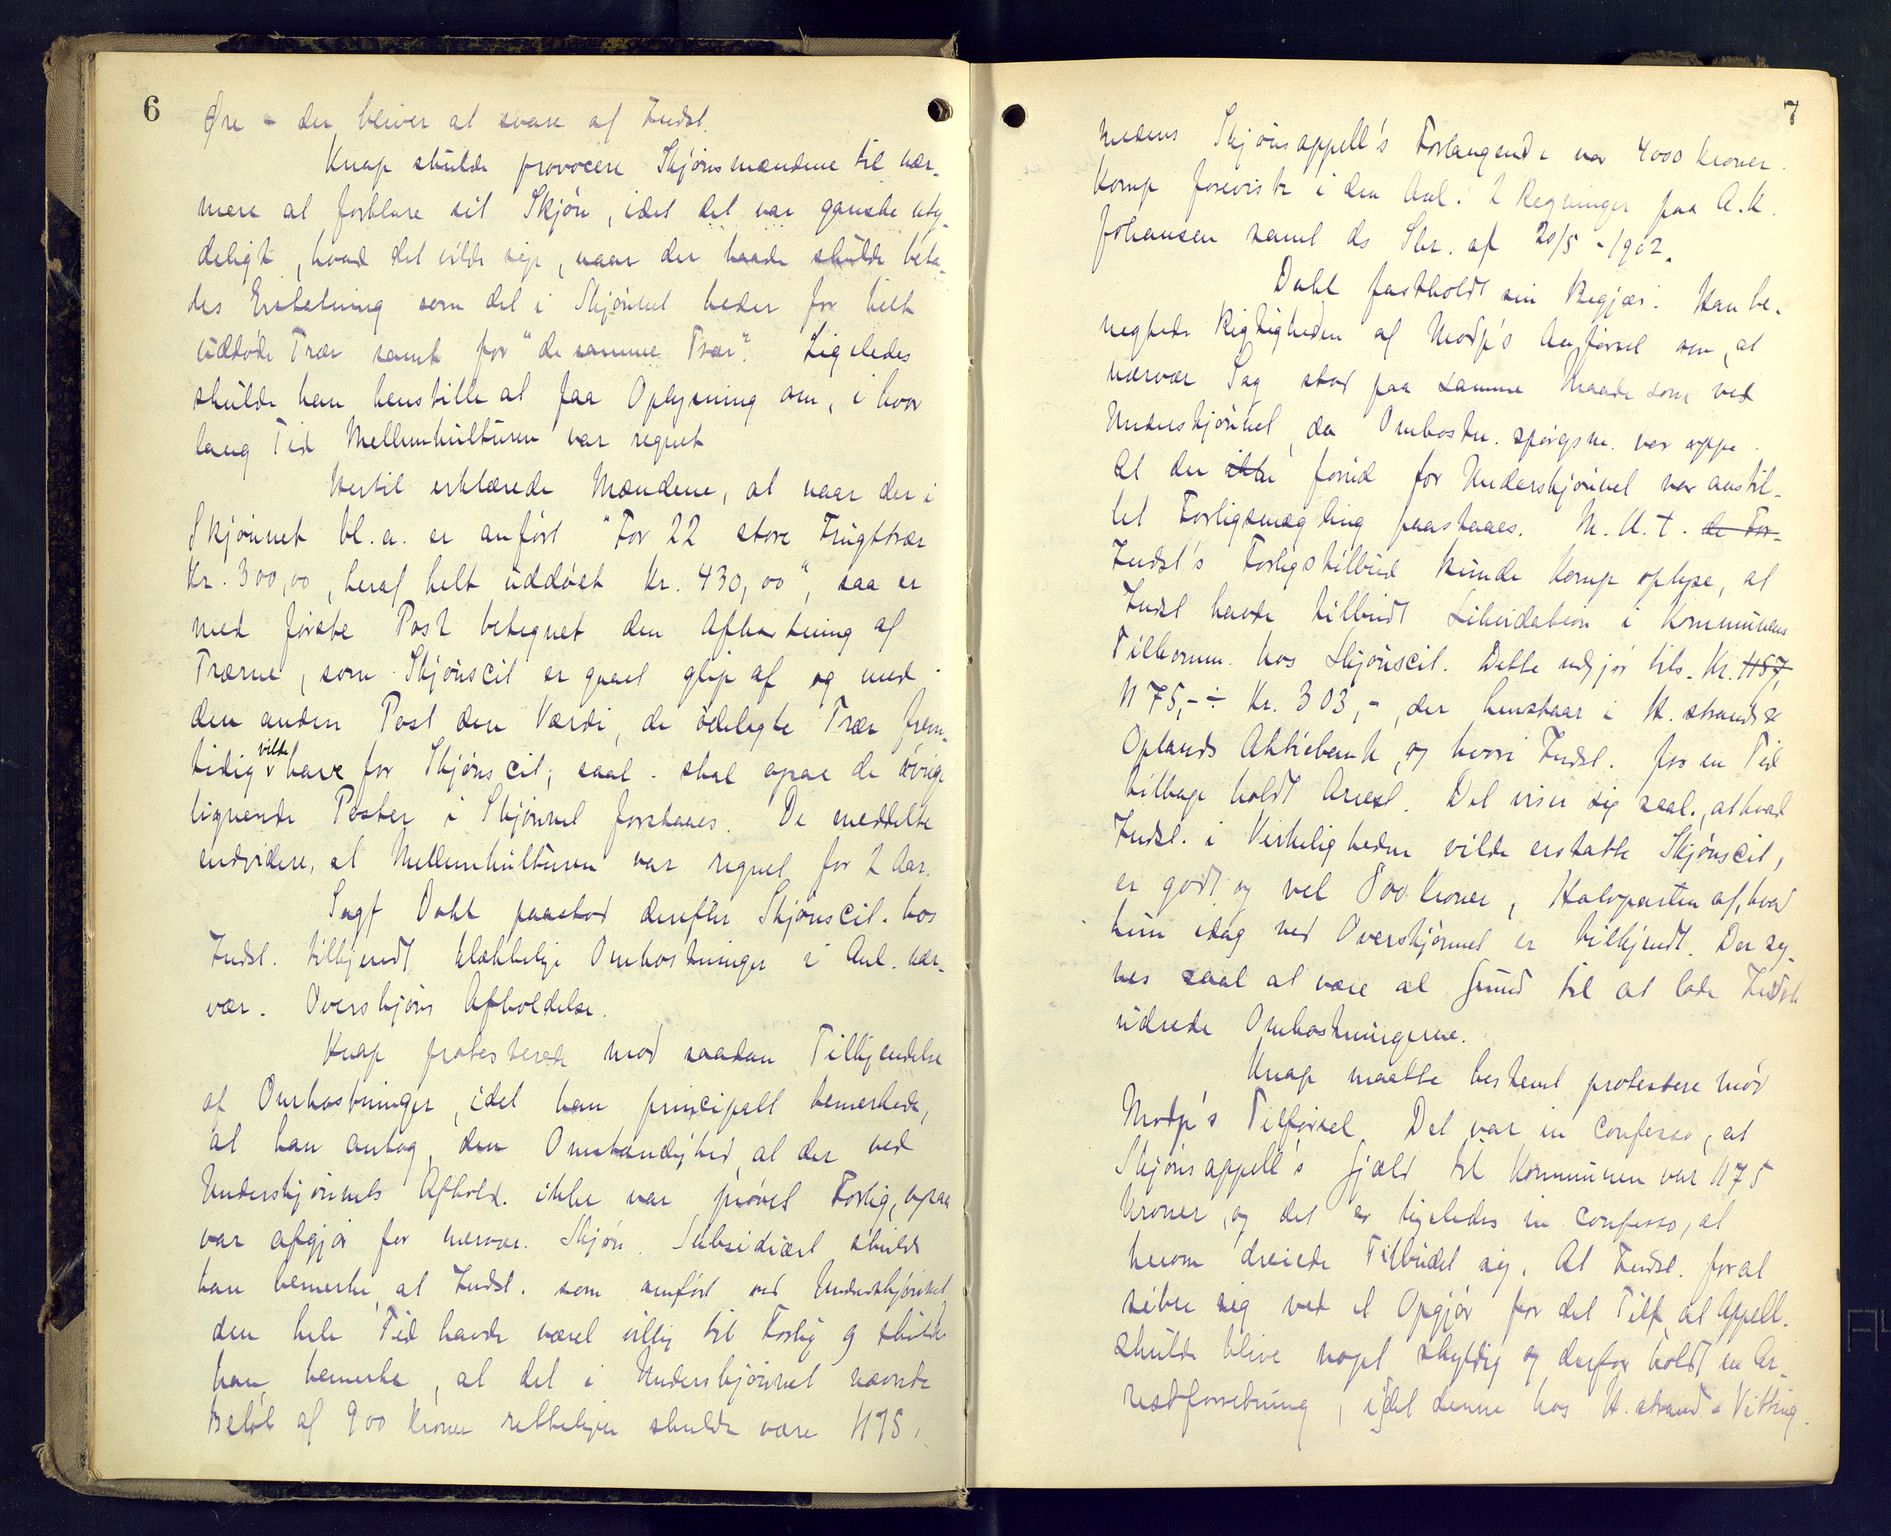 6
Øre – der bliver at svare af Indst.
Knap skulde provocere Skjønsmændene til nær-
mere at forklare sit Skjøn, idet det var ganske uty-
deligt, hvad det vilde sige, naar der haade skulde beta-
les Erstatning som det i Skjønnet heder for helt
uddøde Trær samt for "de samme Trær". Ligeledes
skulde han henstille at faa Oplysning om, i hvor
lang Tid Mellemkulturen var regnet
Hertil erklærede Mændene, at naar der i
Skjønnet bl.a. er anført "For 22 store Frugttrær
Kr. 300,00, heraf helt uddøet Kr. 430,00", saa er
med første Post betegnet den Afkastning af
Trærne, som Skjønscit er gaaet glip af og med
den anden Post den Værdi, de ødelagte Trær frem-
tidig vilde have for Skjønscit; saal. skal ogsaa de øvrige
lignende Poster i Skjønnet forstaaes. De meddelte
endvidere, at Mellemkulturen var regnet for 2 Aar.
Sagf Dahl paastod derefter Skjønscit. hos
Indst. tilkjendt klækkelige Omkostninger i Anl. nær-
vær. Overskjøns Afholdelse.
Knap protesterede mod saadan Tilkjendelse
af Omkostninger, idet han principalt bemerkede,
at han antog, den Omstændighed, at der ved
Underskjønnets Afhold. ikke var prøvet Forlig, ogsaa
var afgjør for nærvær. Skjøn. Subsidiært skulde
han bemerke, at Indst. som anført ved Underskjønnet
den hele Tid havde været villig til Forlig og skulde
han bemerke, at det i Underskjønnet nævnte
Beløb af 900 Kroner rettelig skulde være 1175,
7
medens Skjønsappell's Forlangende var 4000 Kroner.
Komp foreviste i den Anl. 2 Regninger paa A. K.
Johansen samt ds Skr. af 20/5 - 1902.
Dahl fastholdt sin Begjær. Han be-
negtede Rigtigheden af Modp's Anførsel om, at
nærvær Sag stod paa samme Maade som ved
Underskjønnet, da Omkostn. spørgsm. var oppe.
At der ikke forud for Underskjønnet var anstil-
let Forligsmægling paastaaes. M.H.t. de For-
Indst's Forligstilbud kunde Komp oplyse, at
Indst havde tilbudt Likvidation i Kommunens
Tilkomm. hos Skjønscit. Dette udgjør tils. Kr. 1157,
1175,- ÷ Kr. 303,-, der henstaar i H. strands &
Oplands Aktiebank, og hvori Indst. for en Tid
tilbage holdt Arrest. Det viser sig saal., at hvad
Indst. i Virkeligheden vilde erstatte Skjønscit,
er godt og vel 800 Kroner, Halvparten af, hvad
hun idag ved Overskjønnet er tilkjendt. Der sy-
nes saal at være al Grund til at lade Indst
udrede Omkostningerne.
Knap maatte bestemt protestere mod
Modp's Tilførsel. Det var in confesso, at
Skjønsappell's Gjæld til Kommunen var 1175
Kroner, og det er ligeledes in confesso, at
herom dreiede Tilbudet sig. At Indst. for at
sikre sig ved et Opgjør for det Tilf. at Appell.
skulde blive noget skyldig og derfor holdt en Ar-
restforretning, idet denne hos H. strand - Vitting-